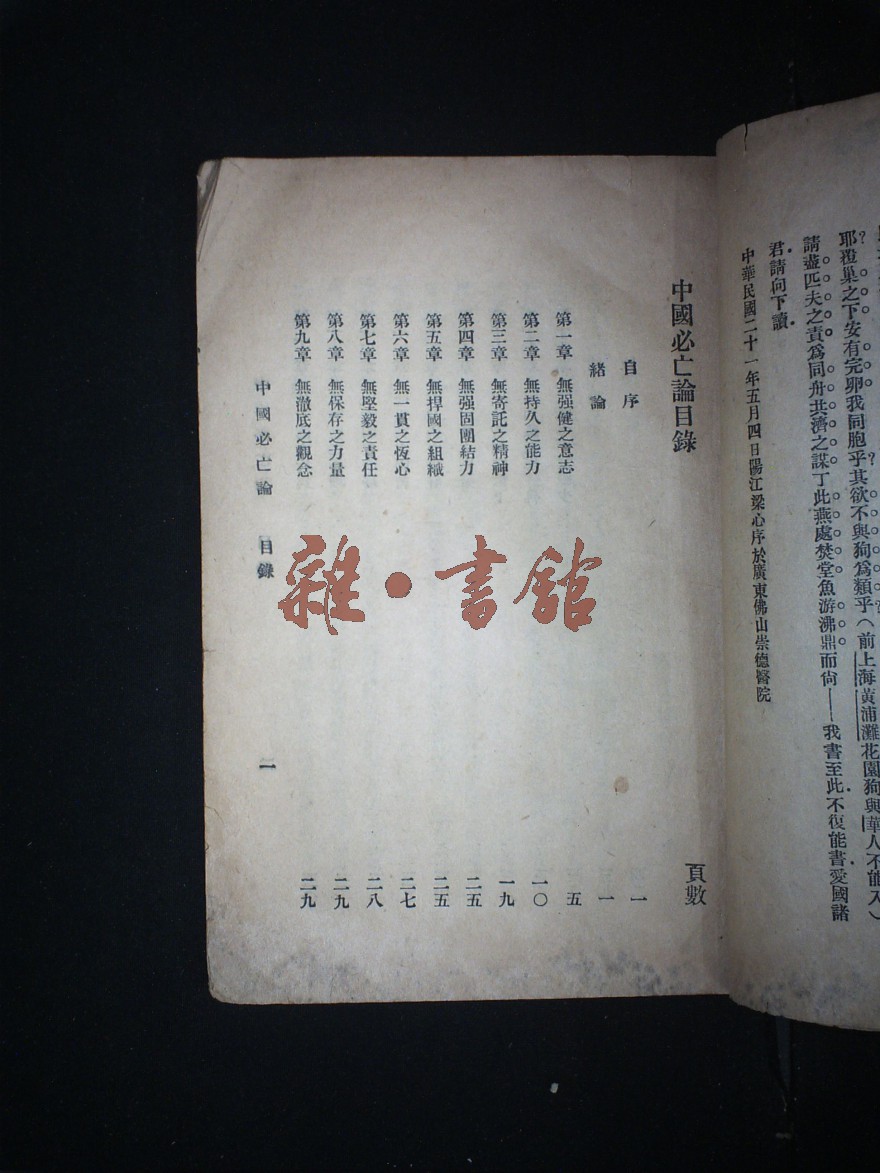 耶？覆巢之下安有完卵我同胞乎其欲不與狗爲類乎？（前上海黃浦灘花園狗與華人不能入）
請盡匹夫之責爲同舟共濟之謀丁此燕處焚堂魚游沸鼎而尙——我書至此不復能書愛國諸
君請向下讀
中華民國二十一年五月四日陽江梁心序於廣東佛山崇德醫院
中國必亡論目錄　頁數
自序　一
緒論　一
第一章　無强健之意志　五
第二章　無持久之能力　一〇
第三章　無寄託之精神　一九
第四章　無强固團結力　二五
第五章　無捍國之組織　二五
第六章　無一貫之恆心　二七
第七章　無堅毅之責任　二八
第八章　無保存之力量　二九
第九章　無澈底之觀念　二九
中國必亡論　目錄　二
雜·書館